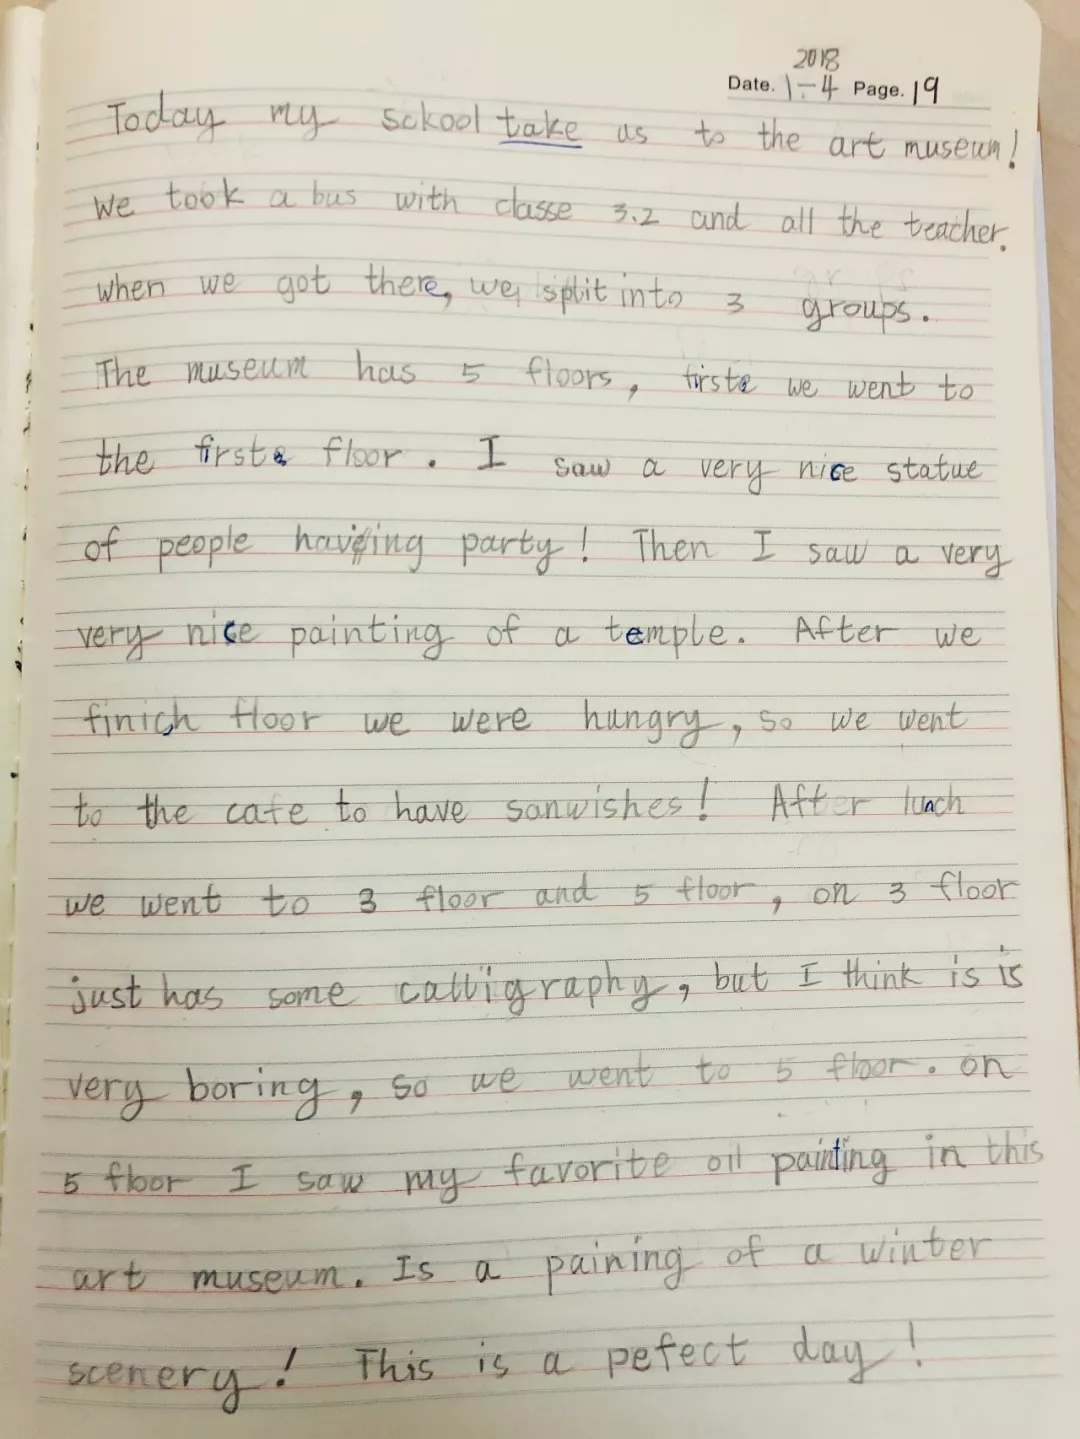 2018
Date. 1-4 Page. 19
Today my sckool take us to the art museum!
We took a bus with classe 3.2 and all the teacher.
when we got there, we split into 3 groups.
The museum has 5 floors, firste we went to
the firste floor. I saw a very nice statue
of people haveing party! Then I saw a very
very nice painting of a temple. After we
finich floor we were hungry, so we went
to the cafe to have sanwishes! After lunch
we went to 3 floor and 5 floor, on 3 floor
just has some calligraphy, but I think is is
very boring, so we went to 5 floor. on
5 floor I saw my favorite oil painting in this
art museum. Is a paining of a winter
scenery! This is a pefect day!